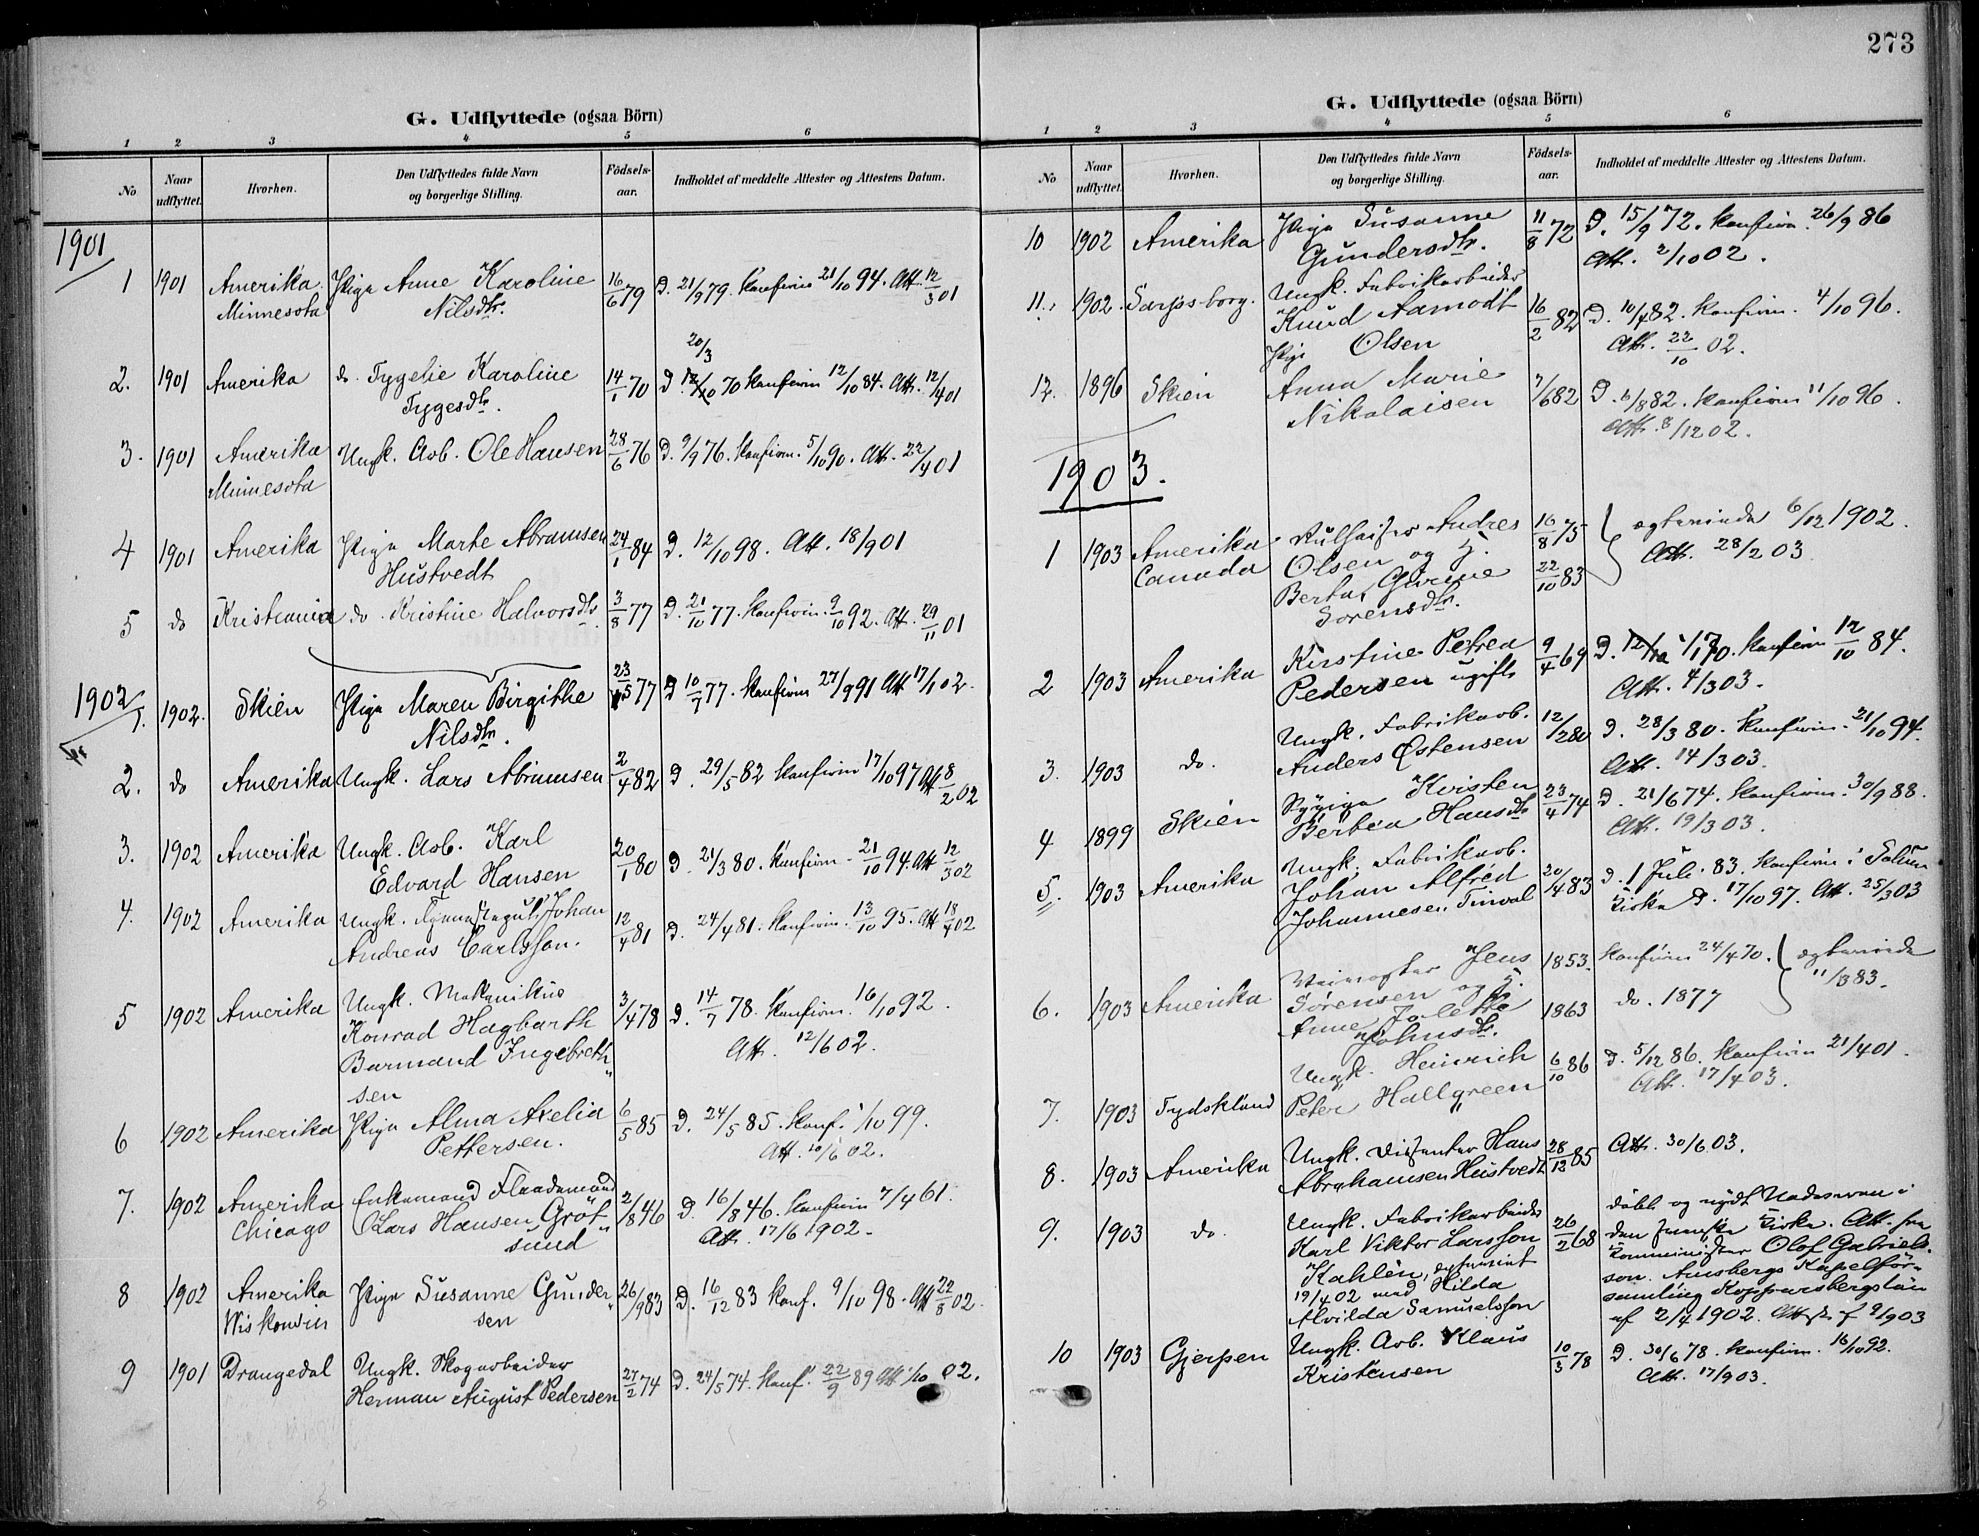 G. Udflyttede (ogsaa Börn)
1 2 3 4 5 6
No Naar udflyttet. Hvorhen. Den Udflyttedes fulde Navn og borgerlige Stilling. Födsels-aar. Indholdet af meddelte Attester og Attestens Datum.
1901
1 1901 Amerika Pige Anne Karoline 16/6 79 D. 21/9 79. Konfirm 21/10 94. Att. 12/3 01
Minnesota Nilsdtr.
20/3
2. 1901 Amerika do. Tygelie Karoline 14/1 70 D. 70 Konfirm 12/10 84. Att. 12/4 01
Tygesdtr.
3. 1901 Amerika Ungk. Arb. Ole Hansen 28/6 76 D. 9/9 76. Konfirm. 5/10 90. Att. 22/4 01
Minnesota
4 1901 Amerika Pige Marte Abramsen 24/1 84 D. 12/10 98. Att. 18/9 01
Hustvedt
5 do Kristiania do Kristine Halvorsdtr. 3/8 77 D. 21/10 77. Konfirm. 9/10 92. Att. 29/11 01
1902
1. 1902. Skien Pige Maren Birgithe 23/5 77 D 10/7 77. Konfirm 27/9 91 Att 17/1 02.
Nilsdtr.
2. do Amerika Ungk. Lars Abramsen 2/4 82 D. 29/5 82 Konfirm 17/10 97 Att 8/2 02
3. 1902 Amerika Ungk. Arb. Karl 20/1 80 D. 21/3 80. Konfirm. 21/10 94. Att 12/3 02
Edvard Hansen
4. 1902 Amerika Ungk. Johan 12/4 81 D. 24/4 81. Konfirm. 13/10 95. Att 18/4 02
Andreas Carlsson.
5 1902 Amerika Ungk. Mekanikus 3/4 78 D. 14/7 78. Konfirm. 16/10 92.
Konrad Hagbarth Att. 12/6 02.
Barmand Ingebreth
sen
6 1902 Amerika Pige Alma Axelia 6/5 85 D. 24/5 85. Konf. 1/10 99.
Pettersen. Att. 10/6 02.
7. 1902 Amerika Enkemand 2/8 46 D. 16/8 46. Konfirm 7/4 61.
Chicago Lars Hansen Gröt Att. 17/6 1902.
sund
8 1902 Amerika Pige Susanne Gunder 26/9 83 D. 16/12 83 Konf. 9/10 98. Att 22/8 02.
Wiskonsin sen
9 1901 Drangedal Ungk. Skogarbeider 27/2 74 D. 24/5 74. Konf. 22/9 89 Att 1/10 02.
Herman August Pedersen
273
G. Udflyttede (ogsaa Börn)
1 2 3 4 5 6
No Naar udflyttet. Hvorhen. Den Udflyttedes fulde Navn og borgerlige Stilling. Födsels-aar. Indholdet af meddelte Attester og Attestens Datum.
10 1902 Amerika Pige Susanne 11/8 72 D. 15/9 72. Konfirm. 26/9 86
Gundersdtr. Att. 2/10 02.
11. 1902. Sarpsborg. Ungk. Fabrikarbeider
Knud Aamodt 16/2 82 D. 10/4 82. Konfirm. 4/10 96.
Olsen Att. 22/10 02.
Pige
12. 1896 Skien Anna Marie 7/6 82 D. 6/8 82. Konfirm 11/10 96.
Nikolaisen Att. 8/12 02.
1903.
1 1903 Amerika Andres 16/8 75 ægteviede 6/12 1902.
Canada Olsen og H. 22/10 83 Att. 28/2 03.
Berta Gurine
Sorensdtr.
2 1903 Amerika Kirstine Petrea 9/4 69 D. 1/1 70. Konfirm 12/10 84.
Pedersen ugift Att. 4/3 03.
3. 1903 do. Ungk. Fabrikarb. 12/2 80 D. 28/3 80. Konfirm. 21/10 94.
Anders Østensen Att. 14/3 03.
4 1899 Skien Sypige Kirsten 23/4 74 D. 21/6 74. Konfirm. 30/9 88.
Berbea Hansdtr Att. 19/3 03.
5. 1903 Amerika Ungk. Fabrikarb. 20/4 83 D. 1 Juli 83. Konfirm i Solum
Johan Alfred Kirke D. 17/10 97. Att. 25/3 03
Johannesen Tinval
6. 1903 Amerika Jens 1853. Konfirm 24/4 70. ægteviede
Sørensen og H. 11/3 83.
Anne 1863 do. 1877
Johnsdtr.
7. 1903 Tydskland Ungk. Heinrich 6/10 86 D. 5/12 86. Konfirm 21/4 01.
Peter Hallgreen Att. 17/4 03.
8. 1903 Amerika Ungk. Dissenter Hans 28/12 85 Att. 30/6 03.
Abrahamsen Hustvedt
9. 1903 do. Ungk. Fabrikarbeider 26/2 68 döbt og nydt Nadveren i
Karl Viktor Larsson den svenske Kirke. Att. fra
Kahlén, Komminister Olof Gabriels-
19/4 02 med Hilda son. Amsbergs Kapelför-
Alvilda Samuelsson samling Kopparsbergslän
af 2/4 1902. Att 9/9 03
10 1903 Gjerpen Ungk. Arb. Klaus 10/3 78 D. 30/6 78. Konfirm. 16/10 92.
Kristensen Att. 17/9 03.